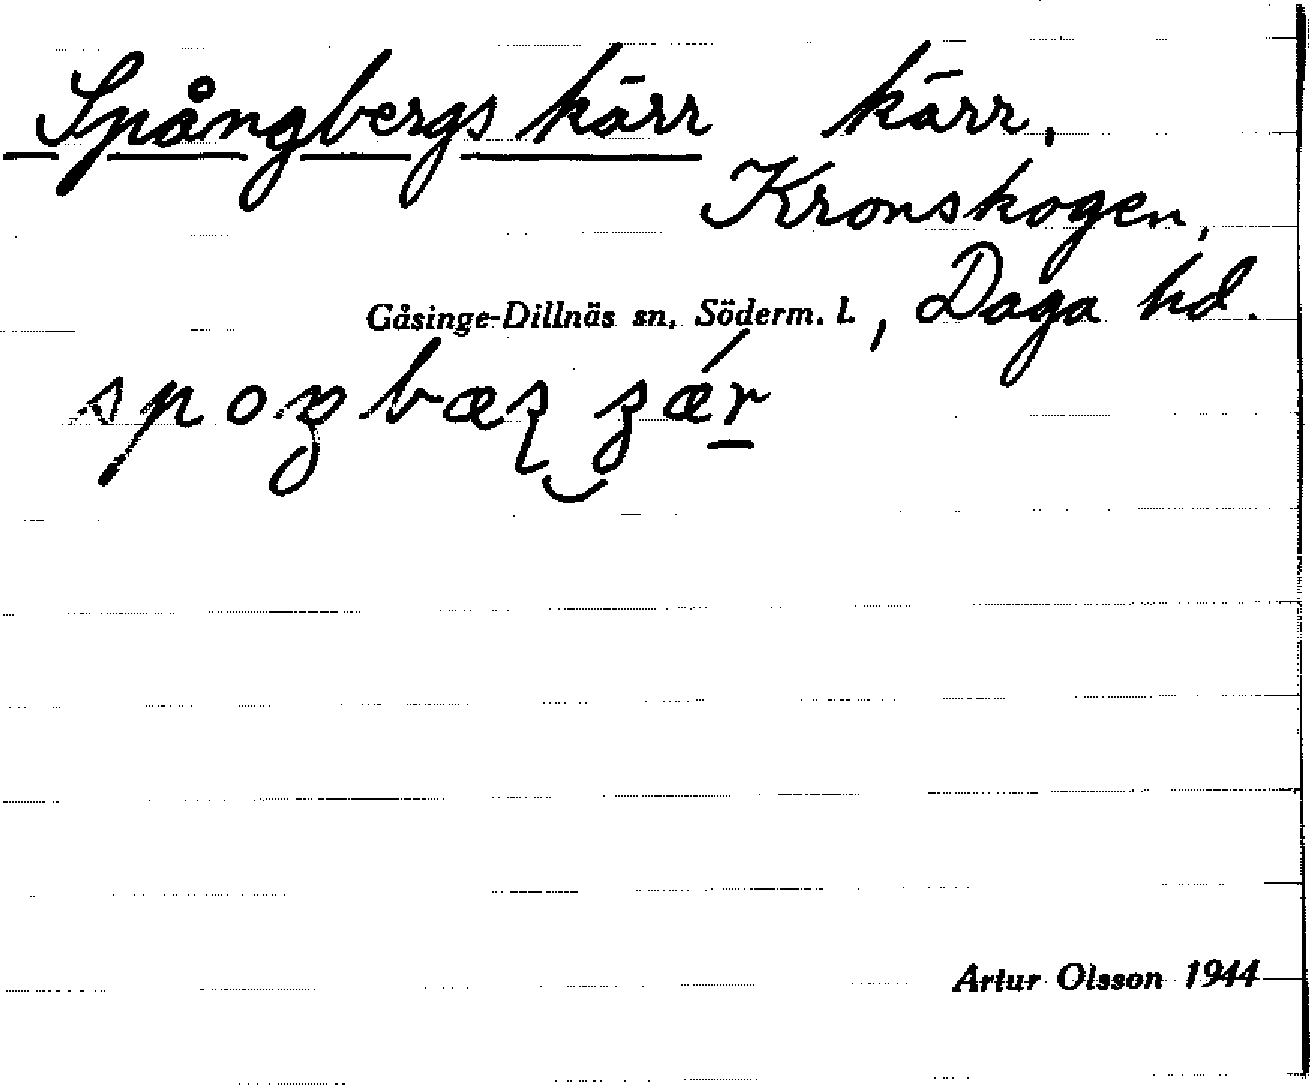 Spångbergs kärr kärr,
Kronskogen,
Gåsinge-Dillnäs sn, Söderm. l., Daga hd.
Artur Olsson 1944